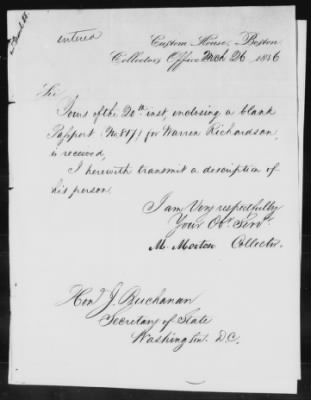 entered
Custom House, Boston
Collectors Office March 26 1846
Sir
Yours of the 20th inst, enclosing a blank
Passport (No. 8171) for Warren Richardson,
is received,
I herewith transmit a description of
his person.
I am Very respectfully
Your Obt. Servt.
M. Morton Collector.
Hon. J. Buchanan
Secretary of State
Washington. D.C.